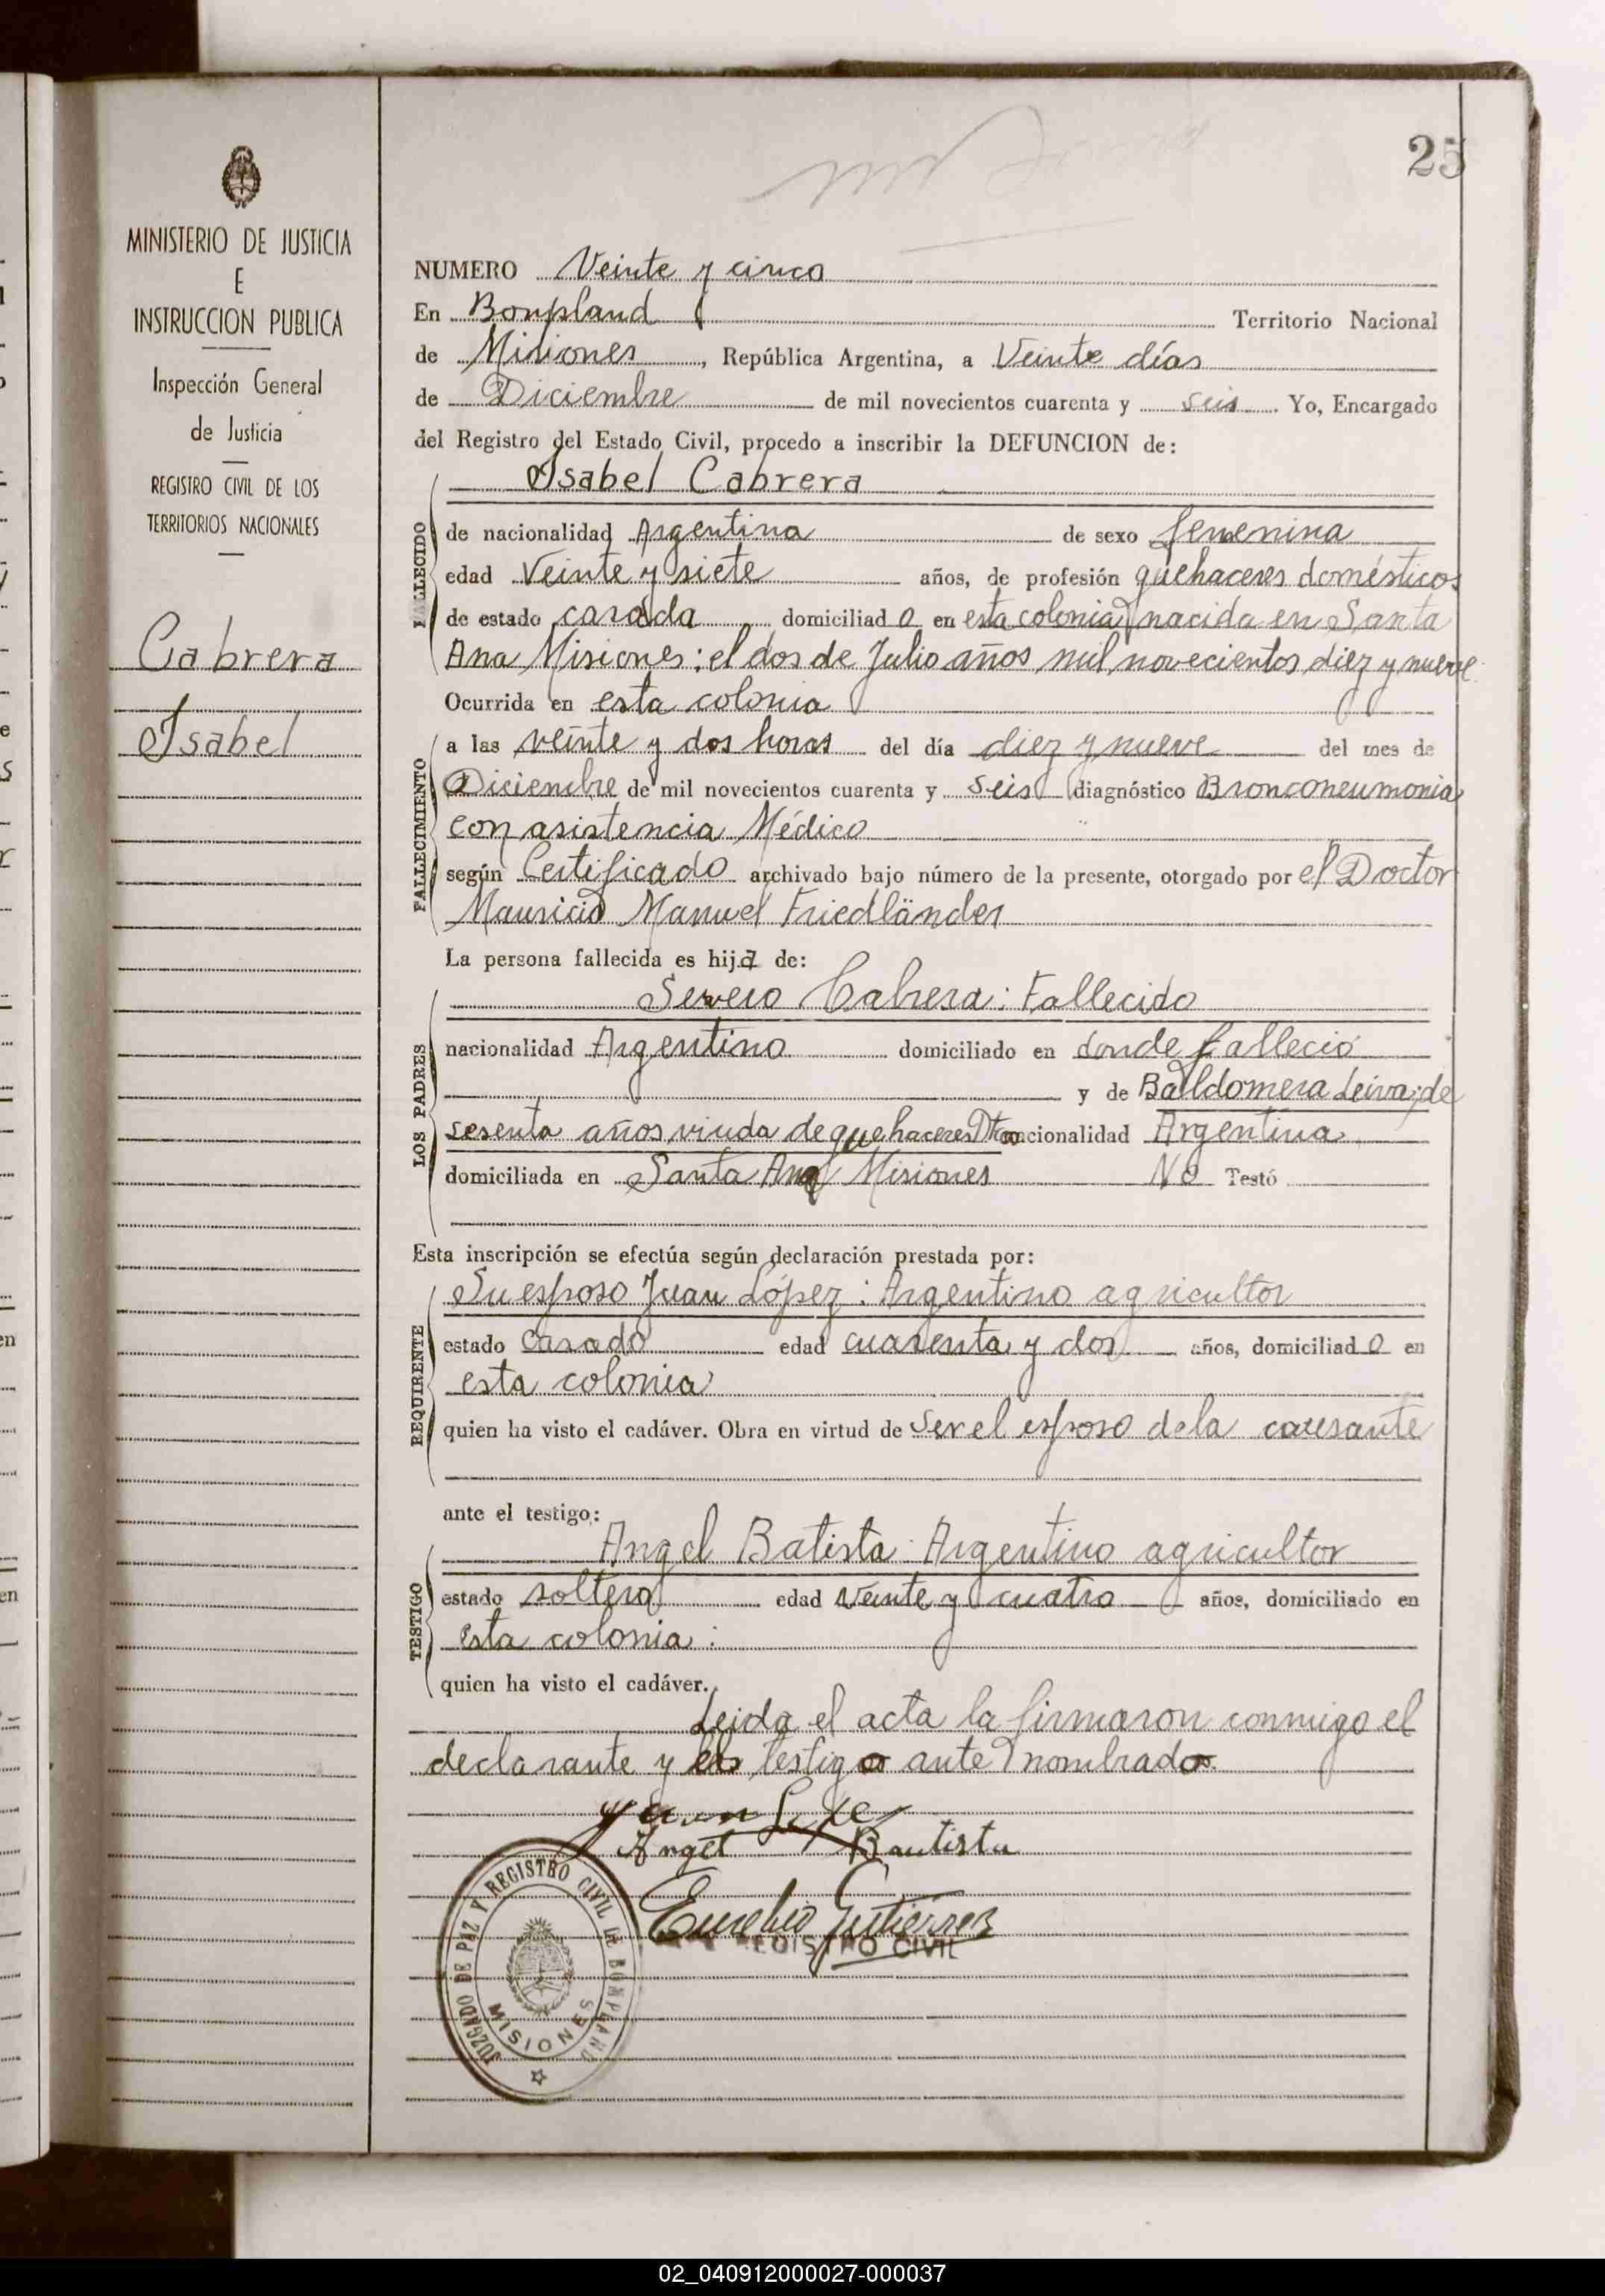 25
MINISTERIO DE JUSTICIA
E
INSTRUCCION PUBLICA
Inspección General
de Justicia
REGISTRO CIVIL DE LOS
TERRITORIOS NACIONALES
Cabrera
Isabel
NUMERO Veinte y cinco
En Bonpland Territorio Nacional
de Misiones, República Argentina, a Veinte días
de Diciembre de mil novecientos cuarenta y seis. Yo, Encargado
del Registro del Estado Civil, procedo a inscribir la DEFUNCION de:
Isabel Cabrera
FALLECIDO
de nacionalidad Argentina de sexo femenina
edad Veinte y siete años, de profesión quehaceres domésticos
de estado casada domiciliad a en esta colonia nacida en Santa
Ana Misiones: el dos de Julio años mil novecientos diez y nueve
Ocurrida en esta colonia
FALLECIMIENTO
a las veinte y dos horas del día diez y nueve del mes de
Diciembre de mil novecientos cuarenta y seis diagnóstico Bronconeumonia
con asistencia Médico
según Certificado archivado bajo número de la presente, otorgado por el Doctor
Mauricio Manuel Friedländer
La persona fallecida es hija de:
LOS PADRES
Severo Cabrera: Fallecido
nacionalidad Argentino domiciliado en donde falleció
y de Baldomera Leiva; de
sesenta años viuda de quehaceres nacionalidad Argentina
domiciliada en Santa Ana Misiones No Testó
Esta inscripción se efectúa según declaración prestada por:
REQUIRENTE
Su esposo Juan López: Argentino agricultor
estado casado edad cuarenta y dos años, domiciliado en
esta colonia
quien ha visto el cadáver. Obra en virtud de ser el esposo de la causante
ante el testigo:
TESTIGO
Angel Batista: Argentino agricultor
estado soltero edad veinte y cuatro años, domiciliado en
esta colonia:
quien ha visto el cadáver.
Leida el acta la firmaron conmigo el
declarante y el testigo ante nombrado.
Juan
Angel Bautista
Eusebio Gutierrez
REGISTRO CIVIL
JUZGADO DE PAZ Y REGISTRO CIVIL DE BONPLAND
MISIONES
02_040912000027-000037